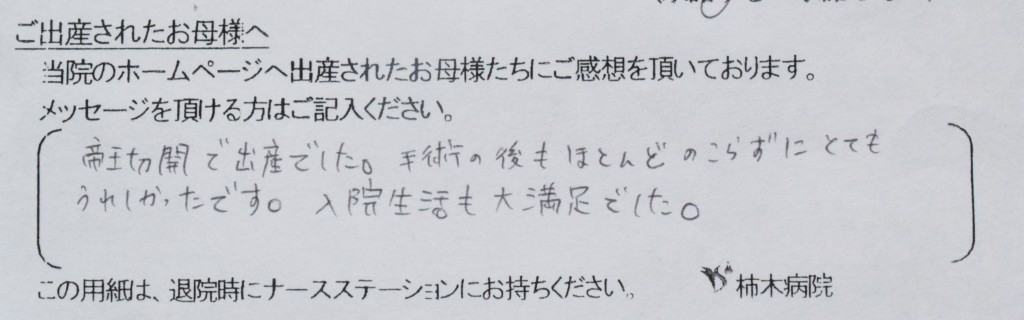 ご出産されたお母様へ
当院のホームページへ出産されたお母様たちにご感想を頂いております。
メッセージを頂ける方はご記入ください。
帝王切開で出産でした。手術の後もほとんどのこらずにとても
うれしかったです。入院生活も大満足でした。
この用紙は、退院時にナースステーションにお持ちください。 柿木病院